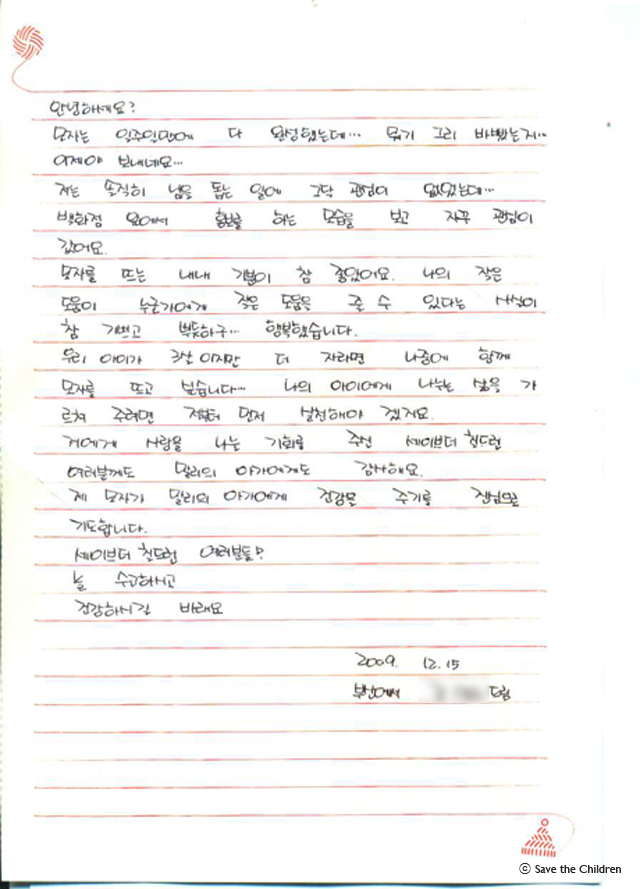 안녕하세요?
모자는 일주일만에 다 완성했는데... 뭐가 그리 바빴는지...
이제야 보내네요...
저는 솔직히 남을 돕는 일에 그닥 관심이 없었는데...
백화점 앞에서 홍보를 하는 모습을 보고 자꾸 관심이
갔어요.
모자를 뜨는 내내 기분이 참 좋았어요. 나의 작은
도움이 누군가에게 작은 도움을 줄 수 있다는 사실이
참 기쁘고 뿌듯하구... 행복했습니다.
우리 아이가 3살이지만 더 자라면 나중에 함께
모자를 뜨고 싶습니다... 나의 아이에게 나누는 삶을 가
르쳐 주려면 저부터 먼저 실천해야 겠지요.
저에게 사랑을 나눌 기회를 주신 세이브더칠드런
여러분께도 말리의 아가에게도 감사해요.
제 모자가 말리의 아가에게 건강을 주기를 진심으로
기도합니다.
세이브더칠드런 여러분들?
늘 수고하시고
건강하시길 바래요
2009. 12. 15
부산에서 드림
ⓒ Save the Children